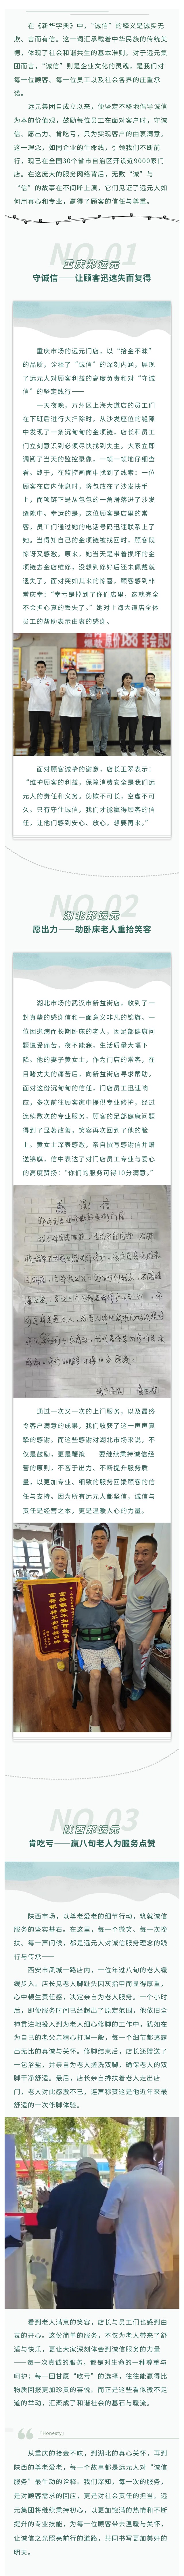 在《新华字典》中，“诚信”的释义是诚实无
欺、言而有信。这一词汇承载着中华民族的传统美
德，体现了社会和谐共生的基本准则。对于远元集
团而言，“诚信”则是企业文化的灵魂，是我们对
每一位顾客、每一位员工以及社会各界的庄重承
诺。
远元集团自成立以来，便坚定不移地倡导诚信
为本的价值观，鼓励每位员工在面对客户时，守诚
信、愿出力、肯吃亏，只为实现客户的由衷满意。
这一理念，如同企业的生命线，引领我们不断前
行，现已在全国30个省市自治区开设近9000家门
店。在这庞大的服务网络背后，无数“诚”与
“信”的故事在不间断上演，它们见证了远元人如
何用真心和专业，赢得了顾客的信任与尊重。
NO.01
重庆郑远元
守诚信——让顾客迅速失而复得
重庆市场的远元门店，以“拾金不昧”
的品质，诠释了“诚信”的深刻内涵，展现
了远元人对顾客利益的高度负责和对“守诚
信”的坚定践行——
一天夜晚，万州区上海大道店的员工们
在下班后进行大扫除时，从沙发座位的缝隙
中发现了一条沉甸甸的金项链。店长和员工
们立刻意识到必须尽快找到失主。大家立即
调阅了当天的监控录像，一帧一帧地仔细查
看。终于，在监控画面中找到了线索：一位
顾客在店内休息时，将包放在了沙发扶手
上，而项链正是从包包的一角滑落进了沙发
缝隙中。幸运的是，这位顾客是店里的常
客，员工们通过她的电话号码迅速联系上了
她。当得知自己的金项链被找回时，顾客既
惊讶又感激。原来，她当天是带着损坏的金
项链去金店维修，没想到修好后还未佩戴就
遗失了。面对突如其来的惊喜，顾客感到非
常庆幸：“幸亏是掉到了你们店里，这就完全
不会担心真的丢失了。”她对上海大道店全体
员工的帮助表示由衷的感谢。
面对顾客诚挚的谢意，店长王翠表示：
“维护顾客的利益，保障消费安全是我们远
元人的责任和义务。伪欺不可长，空虚不可
久，只有守住诚信，我们才能赢得顾客的信
任，让他们感到安心、放心，想要再来。”
NO.02
湖北郑远元
愿出力——助卧床老人重拾笑容
湖北市场的武汉市新益街店，收到了一
封真挚的感谢信和一面意义非凡的锦旗。一
位因患病而长期卧床的老人，因足部健康问
题遭受痛苦，夜不能寐，生活质量大幅下
降。他的妻子黄女士，作为门店的常客，在
目睹丈夫的痛苦后，向新益街店寻求帮助。
面对这份沉甸甸的信任，门店员工迅速响
应，多次前往顾客家中提供专业修护，经过
连续数次的专业服务，顾客的足部健康问题
得到了显著改善，笑容再次回到了他的脸
上。黄女士深表感激，亲自撰写感谢信并赠
送锦旗，信中表达了对门店员工专业与爱心
的高度赞扬：“你们的服务可得10分满意。”
感谢信
通过一次又一次的上门服务，以及最终
令客户满意的成果，我们收获了这一声声真
挚的感谢。而这些感谢对湖北市场来说，不
仅是鼓励，更是鞭策——要继续秉持诚信经
营的原则，不吝于出力、不断提升服务质
量，以更加专业、细致的服务回馈顾客的信
任与支持。因为所有远元人都坚信，诚信与
责任是经营之本，更是温暖人心的力量。
NO.03
陕西郑远元
肯吃亏——赢八旬老人为服务点赞
陕西市场，以尊老爱老的细节行动，筑就诚信
服务的坚实基石。在这里，每一个微笑、每一次搀
扶、每一声问候，都是远元人对诚信服务理念的践
行与传承——
西安市凤城一路店内，一位年过八旬的老人缓
缓步入。店长见老人脚趾头因灰指甲而显得厚重，
心中顿生责任感，决定亲自为老人服务。一个小时
后，即便服务时间已经超出了原定范围，他依旧全
神贯注地投入到为老人细心修脚的工作中，犹如在
为自己的老父亲精心打理一般，每一个细节都透露
出无比的真诚与关怀。修脚结束后，店长还赠送了
一包浴盐，并亲自为老人搓洗双脚，确保老人的双
脚干净舒适。最后，店长亲自搀扶着老人走出店
门，老人对此感激不已，连声称赞这是他近年来最
舒适的一次修脚体验。
看到老人满意的笑容，店长与员工们也感到由
衷的开心。这份简单的服务，不仅为老人带来了舒
适与快乐，更让大家深刻体会到诚信服务的力量
——每一次真诚的服务，都是对生命的一种尊重与
呵护；每一回甘愿“吃亏”的选择，往往能赢得比
物质回报更加珍贵的喜悦。而正是这些看似微不足
道的举动，汇聚成了和谐社会的基石与暖流。
「Honesty」
从重庆的拾金不昧，到湖北的真心关怀，再到
陕西的尊老爱老，每一个故事都是远元人对“诚信
服务”最生动的诠释。我们深知，每一次的服务，
是对顾客需求的回应，更是对社会责任的担当。远
元集团将继续秉持初心，以更加饱满的热情和不断
提升的专业技能，为每一位顾客带去温暖与关怀，
让诚信之光照亮前行的道路，共同书写更加美好的
明天。